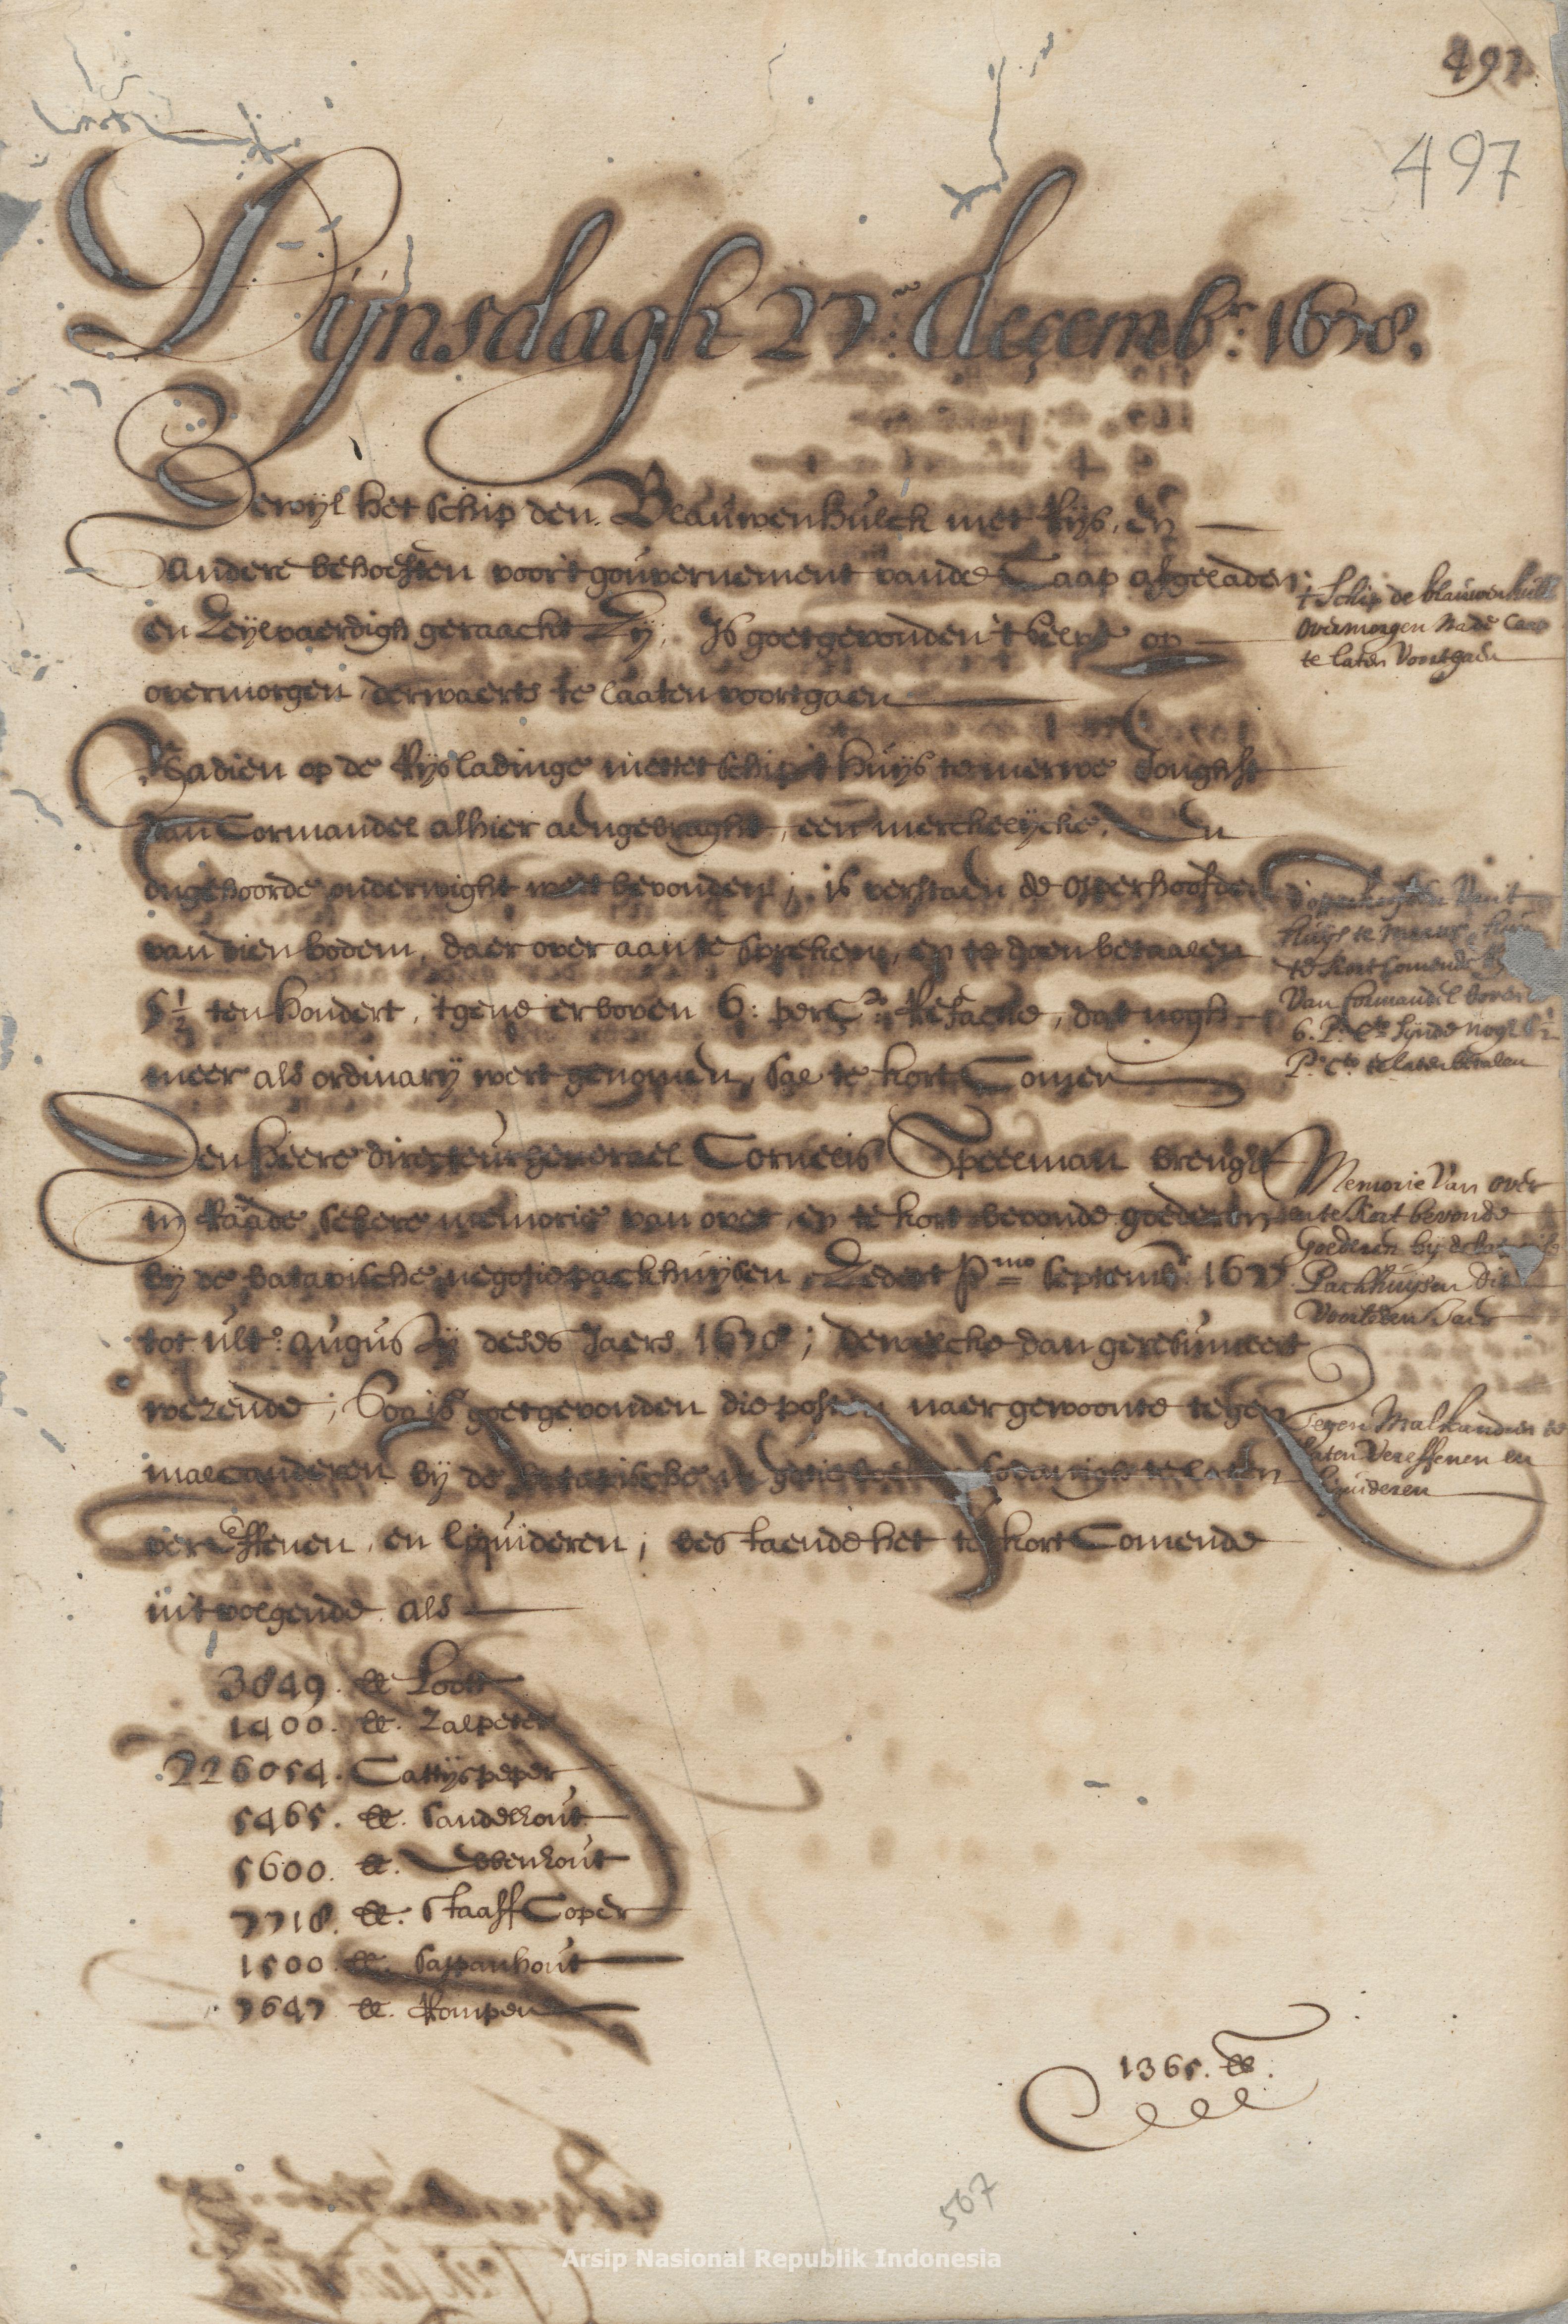 497
497
Dijnsdagh 27:en decemb:r 1678.
Dewijl het schip den Blauwen Hulck met Rijs, en
andere behoeften voor 't gouvernement van de Caap afgeladen,
en Zeijlvaerdigh geraackt Zij, Is goetgevonden 't selve op
overmorgen derwaerts te laaten voortgaen
't Schip de blauwen hulck
overmorgen na de Caap
te laten voortgaen
Nadien op de Rijsladinge mettet schip 't huijs te merwe Jonghst
van Cormandel alhier aengebraght, een merckelijcke, En
ongehoorde onderwight wert bevonden; is verstaen de opperhoofden
van dien bodem, daer over aan te spreken, en te doen betaalen
5 1/2 ten hondert, 'tgene er boven 6: per C:to Refactie, dat nogh
meer als ordinarij wert genomen, sal te kort Comen
d'opperhoofden van 't
Huijs te merwe
te kort comende
van Cormandel boven
6. P:r C:to sijnde nogh 5 1/2
P:r C:to te laten betalen
Den heere directeur generael Cornelis Speelman brenght
in Raade sekere memorie van over, en te kort bevonde goederen
bij de bataviasche negotie packhuijsen, Zedert P:mo Septemb:r 1677
tot ult:o augusty deses Jaers 1678; dewelcke dan geresumeert
wezende; Soo is goetgevonden die posten naer gewoonte tegen
malcanderen bij de bataviasche negotie boecken sodanigh te laten
vereffenen, en liquideren; bestaende het te kort Comende
uit volgende als
Memorie van over
en te kort bevonde
Goederen bij de
Packhuijsen die
voorleden Jaer
tegen Malkanderen te
laten vereffenen en
liquideren
3849. lb Loott
1400. lb. Zalpeter
226054. Cattijs peper
5465. lb. Sandelhout
5600. lb. Ebbenhout
7718. lb. Staaff Coper
1500 lb. Sappanhout
7647 lb. Rompen
1365. lb.
567
Arsip Nasional Republik Indonesia